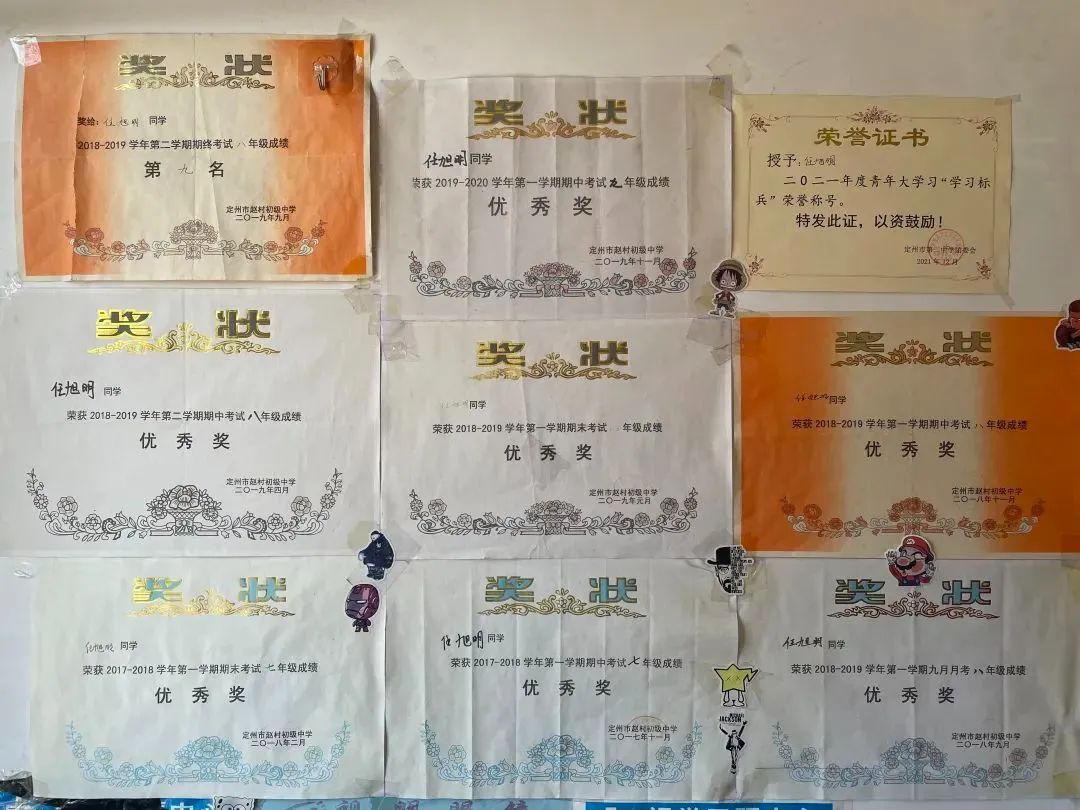 奖 状
奖给：任旭明 同学
2018-2019 学年第二学期期终考试 八 年级成绩
第 九 名
定州市赵村初级中学
二〇一九年九月
奖 状
任旭明同学
荣获 2019-2020 学年第一学期期中考试九年级成绩
优 秀 奖
定州市赵村初级中学
二〇一九年十一月
荣誉证书
授予：任旭明
二〇二一年度青年大学习“学习标
兵”荣誉称号。
特发此证，以资鼓励！
定州市第二中学团委会
2021 年 12 月
奖 状
任旭明 同学
荣获 2018-2019 学年第二学期期中考试八年级成绩
优 秀 奖
定州市赵村初级中学
二〇一九年四月
奖 状
任旭明同学
荣获 2018-2019 学年第一学期期末考试 年级成绩
优 秀 奖
定州市赵村初级中学
二〇一九年元月
奖 状
任旭明同学
荣获 2018-2019 学年第一学期期中考试八年级成绩
优 秀 奖
定州市赵村初级中学
二〇一八年十一月
奖 状
任旭明 同学
荣获 2017-2018 学年第一学期期末考试七年级成绩
优 秀 奖
定州市赵村初级中学
二〇一八年二月
奖 状
任旭明 同学
荣获 2017-2018 学年第一学期期中考试七年级成绩
优 秀 奖
定州市赵村初级中学
二〇一七年十一月
奖 状
任旭明 同学
荣获 2018-2019 学年第一学期九月月考八年级成绩
优 秀 奖
定州市赵村初级中学
二〇一八年九月
MICHAEL
JACKSON